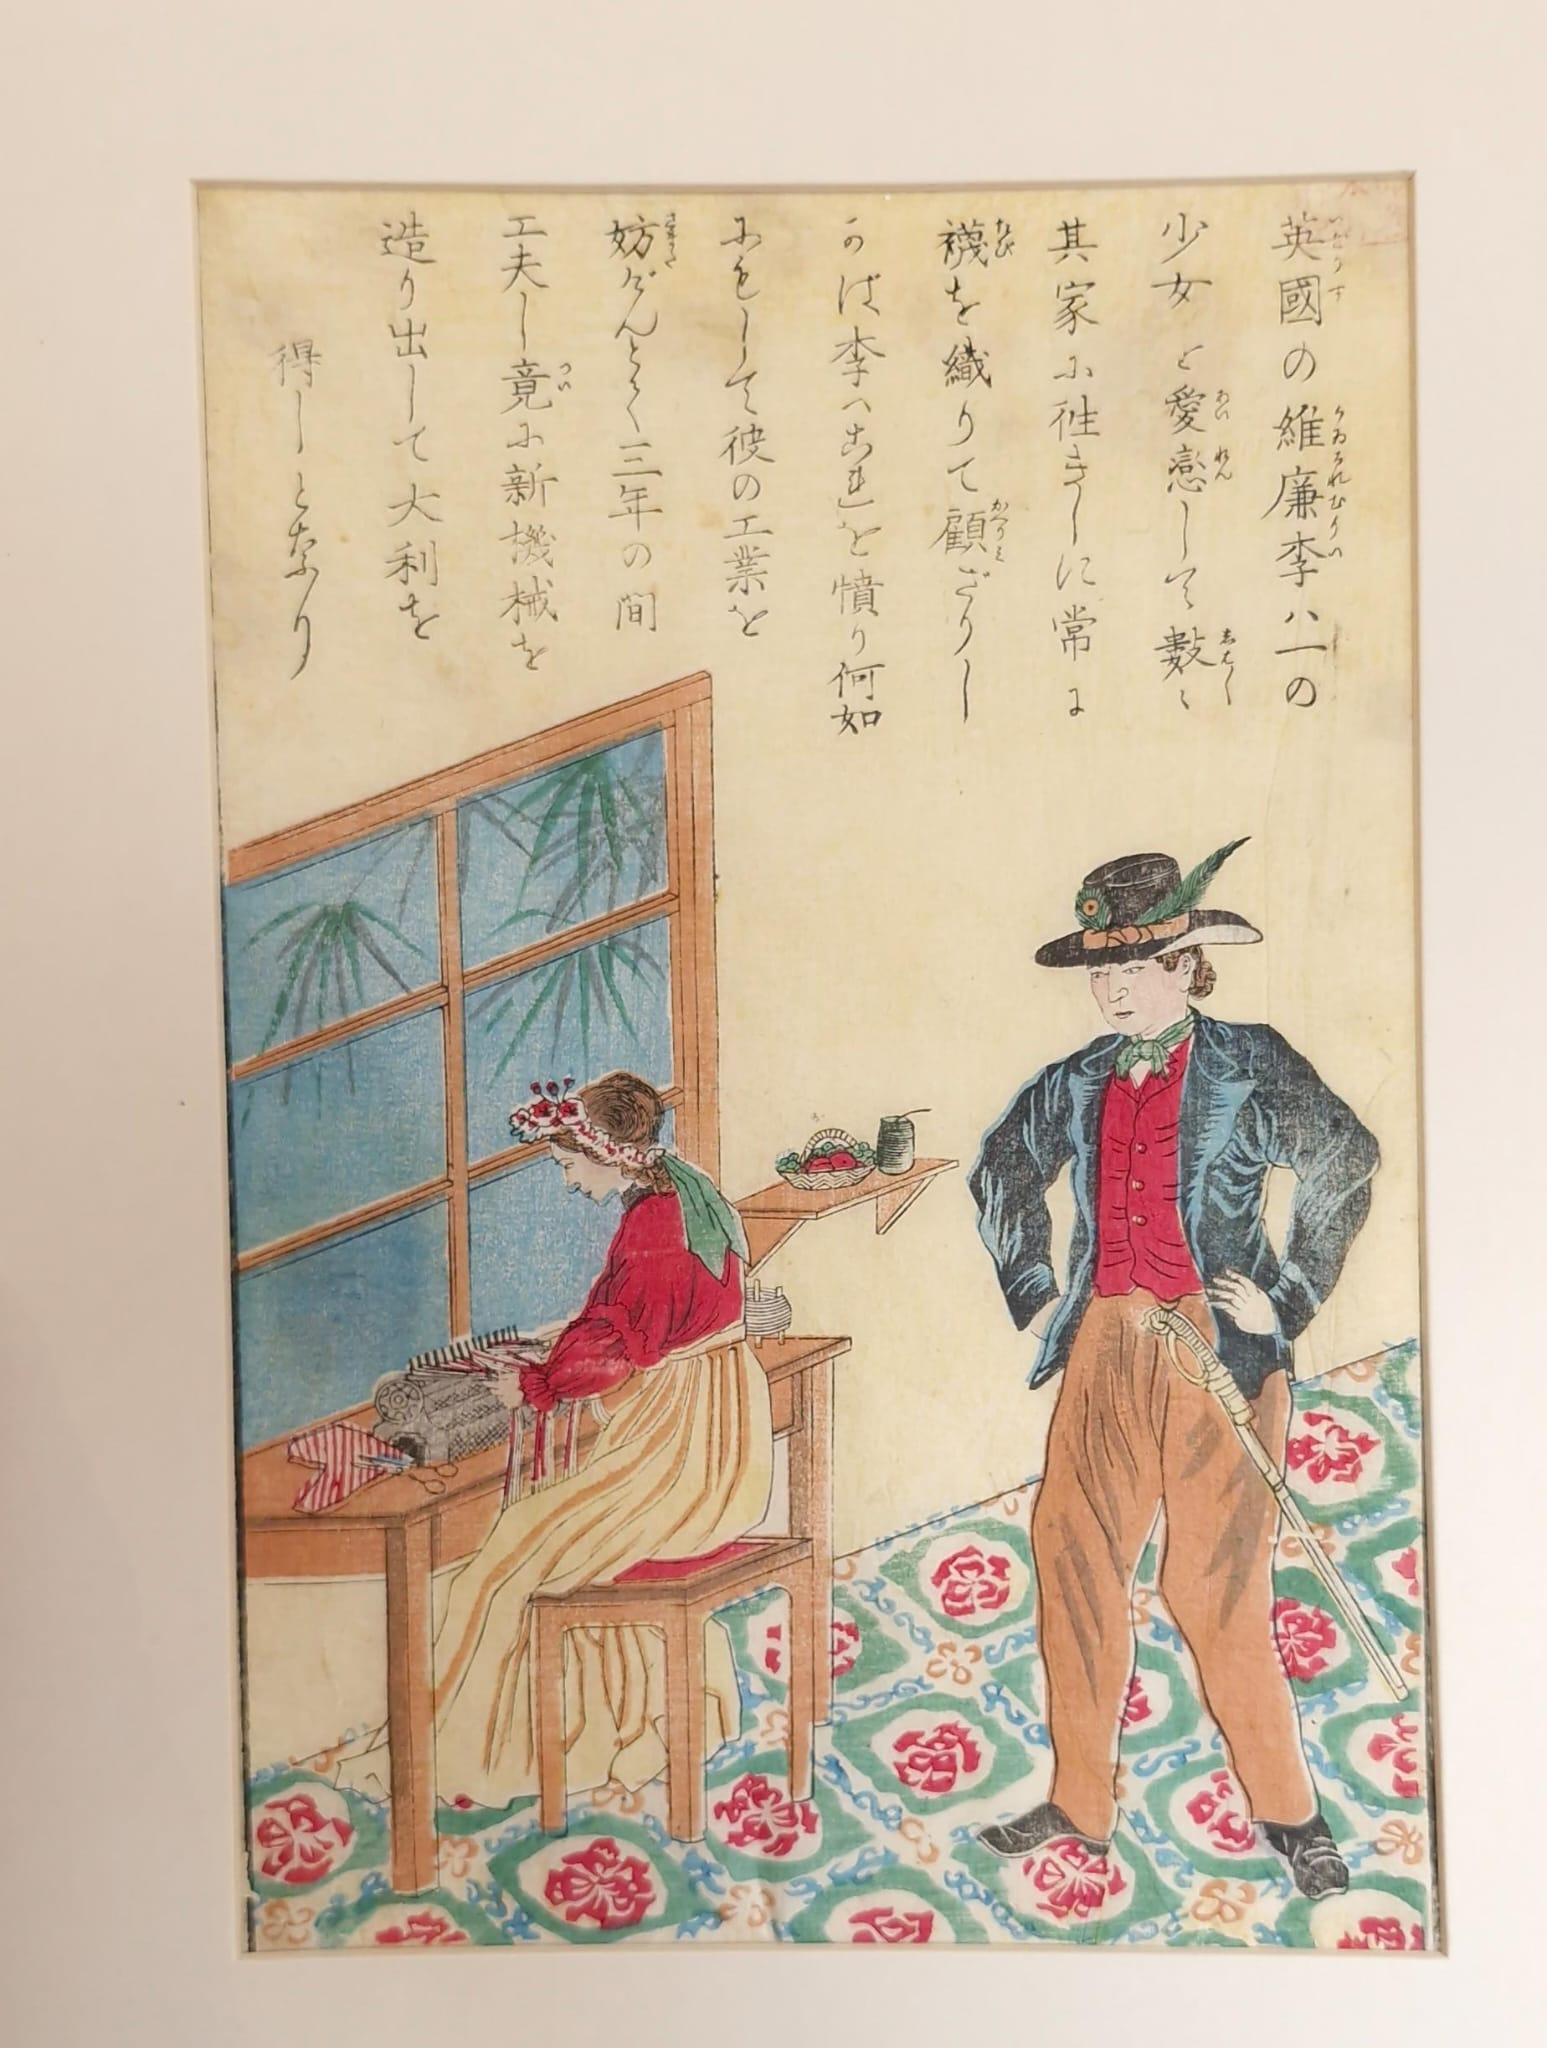 英國の維廉李ハ一の
少女と愛戀して數〻
其家に徃きしに常に
襪を織りて顧ざりし
かば李ハこれを憤り何如
にもして彼の工業を
妨げんとて三年の間
工夫し竟に新機械を
造り出して大利を
得しとなり